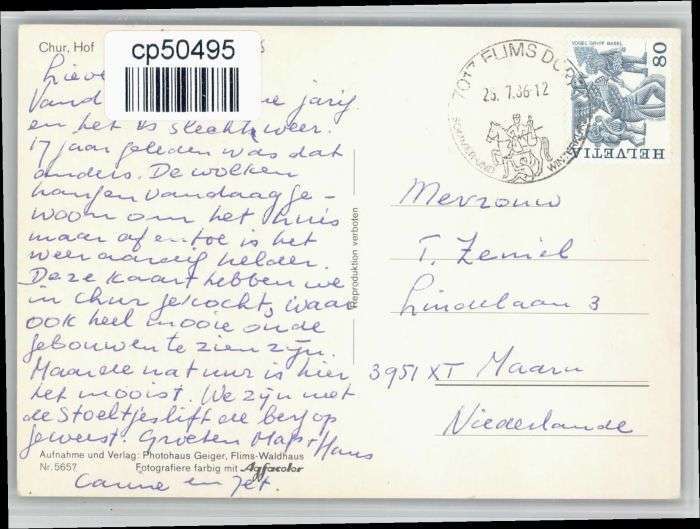 Chur, Hof
cp50495
Lieve
Vand jarig
en het is slecht weer.
17 jaar geleden was dat
anders. De wolken
hangen vandaag ge-
woon om het huis
maar af en toe is het
weer aardig helder.
Deze kaart hebben we
in Chur gekocht, waar
ook heel mooie oude
gebouwen te zien zijn.
Maar de natuur is hier
het mooist. We zijn met
de Stoeltjeslift de berg op
geweest. Groeten Map + Hans
Canne en Jet.
Aufnahme und Verlag: Photohaus Geiger, Flims-Waldhaus
Nr. 5657 Fotografiere farbig mit Agfacolor
Reproduktion verboten
7017 FLIMS DORF
25.7.86-12
VOGEL GRYFF BASEL
80
HELVETIA
Mevrouw
T. Zeniel
Lindelaan 3
3951 XT Maarn
Niederlande